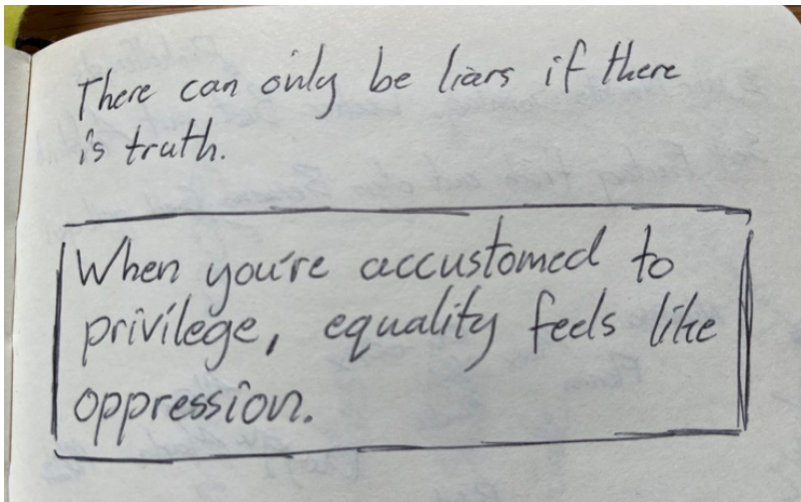 There can only be liars if there
is truth.
When you're accustomed to
privilege, equality feels like
oppression.